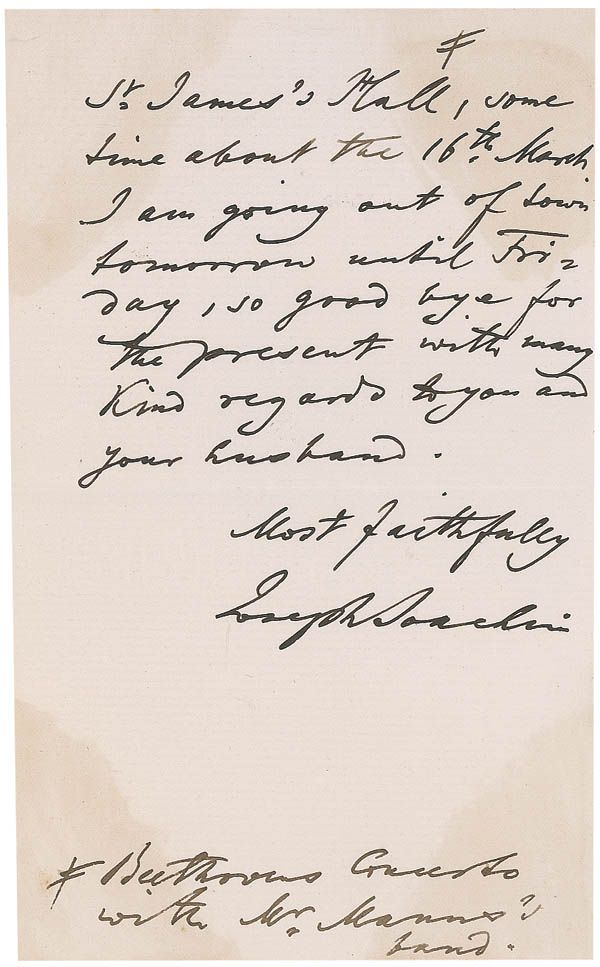 ≠
St. James's Hall, some
time about the 16th. March
I am going out of town
tomorrow until Fri=
day, so good bye for
the present with many
Kind regards to you and
your husband.
Most faithfully
Joseph Joachim
≠ Beethovens Concerto
with Mr. Manns's
band.